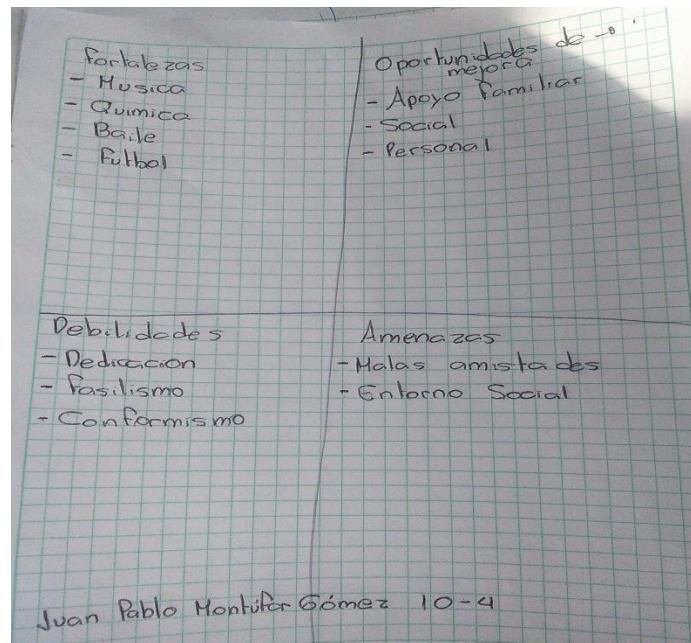 Fortalezas
- Musica
- Quimica
- Baile
- Futbol
Oportunidades de
mejora
- Apoyo familiar
- Social
- Personal
Debilidades
- Dedicacion
- Fasilismo
- Conformismo
Amenazas
- Malas amistades
- Entorno Social
Juan Pablo Montúfar Gómez 10-4